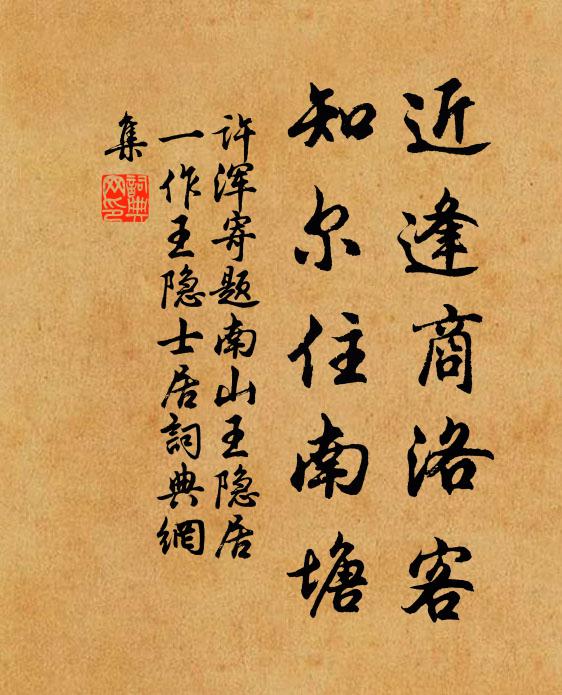 近逢商洛客
知尔住南塘
许浑寄题南山王隐居
一作王隐士居詞典網
集
詞典网印